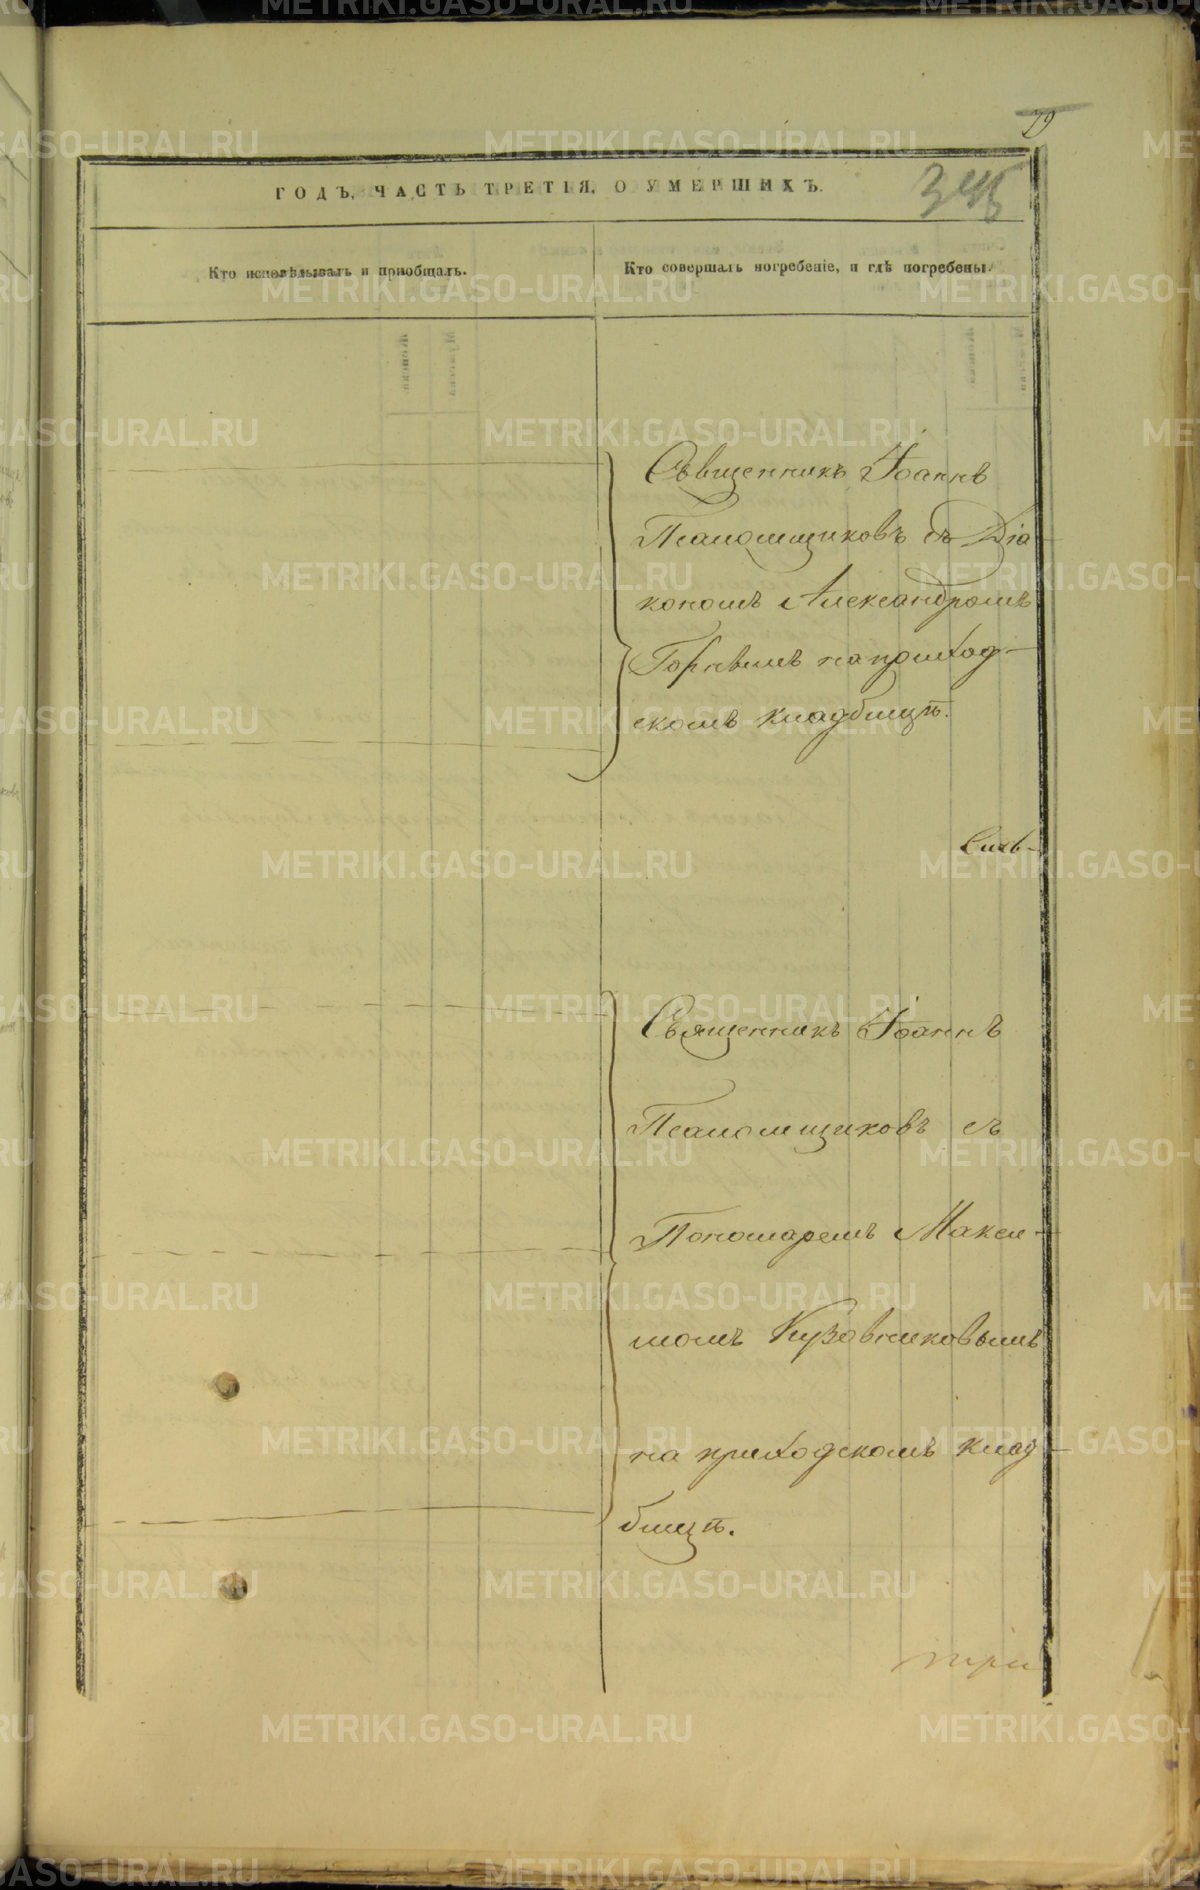 79
ГОДЪ, ЧАСТЬ ТРЕТІЯ, О УМЕРШИХЪ.
345
Кто исповѣдывалъ и пріобщалъ.
Кто совершалъ погребеніе, и гдѣ погребены.
Священникъ Іоаннъ
Псаломщиковъ съ Діа
кономъ Александромъ
Горнымъ на приход-
скомъ кладбищѣ.
Священникъ Іоаннъ
Псаломщиковъ съ
Пономаремъ Макси-
момъ Кузовниковымъ
на приходскомъ клад-
бищѣ.
METRIKI.GASO-URAL.RU